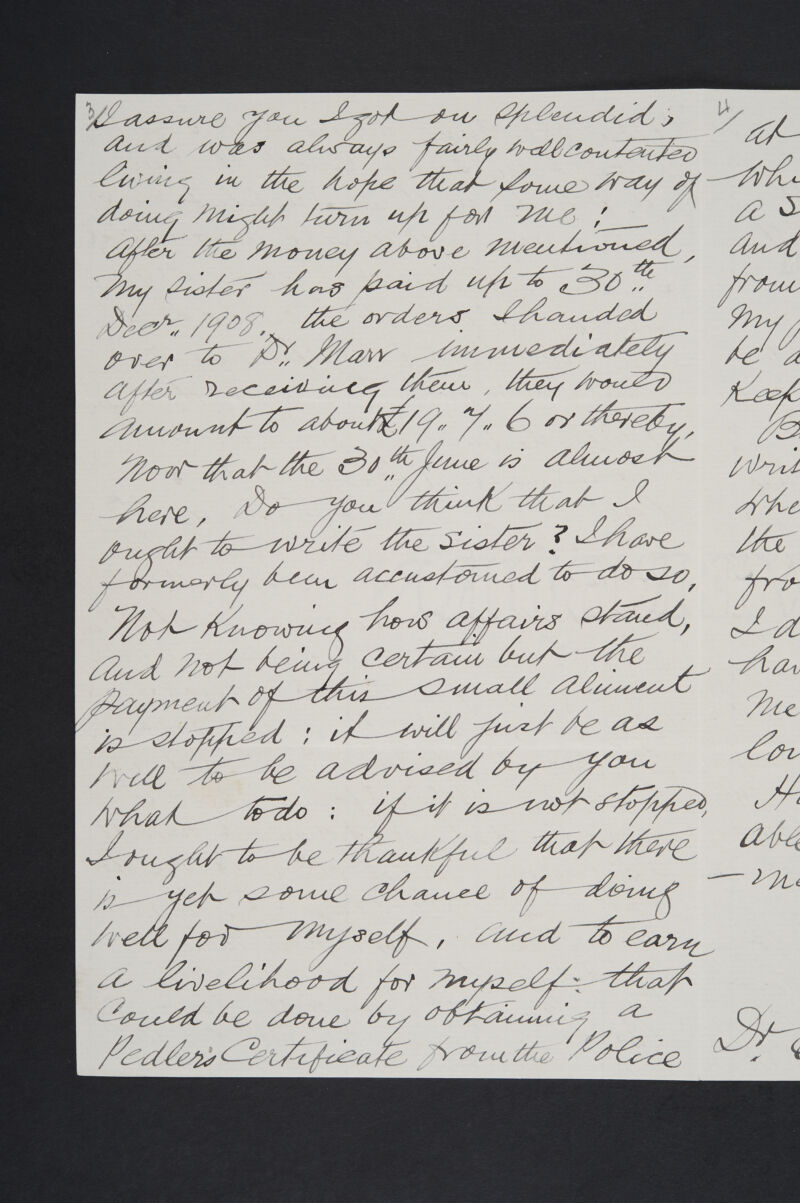 3/ I assure you I got on splendid;
and was always fairly well contented
living in the hope that some way of
doing might turn up for me:
After the money above mentioned,
my sister has paid up to 30th
Decr. 1908. the orders I handed
over to Dr. Marr immediately
after receiving them, they would
amount to about £19.. 7.. 6 or thereby,
Now that the 30th June is almost
here, Do you think that I
ought to write the sister? I have
formerly been accustomed to do so,
Not knowing how affairs stand,
and not being certain but the
payment of this small aliment
is stopped: it will just be as
well to be advised by you
what to do: if it is not stopped,
I ought to be thankful that there
is yet some chance of doing
well for myself, and to earn
a livelihood for myself: that
could be done by obtaining a
Pedler's Certificate from the Police
4/
at
a
and
from
my
be
Keep
the
I
me
Dr.